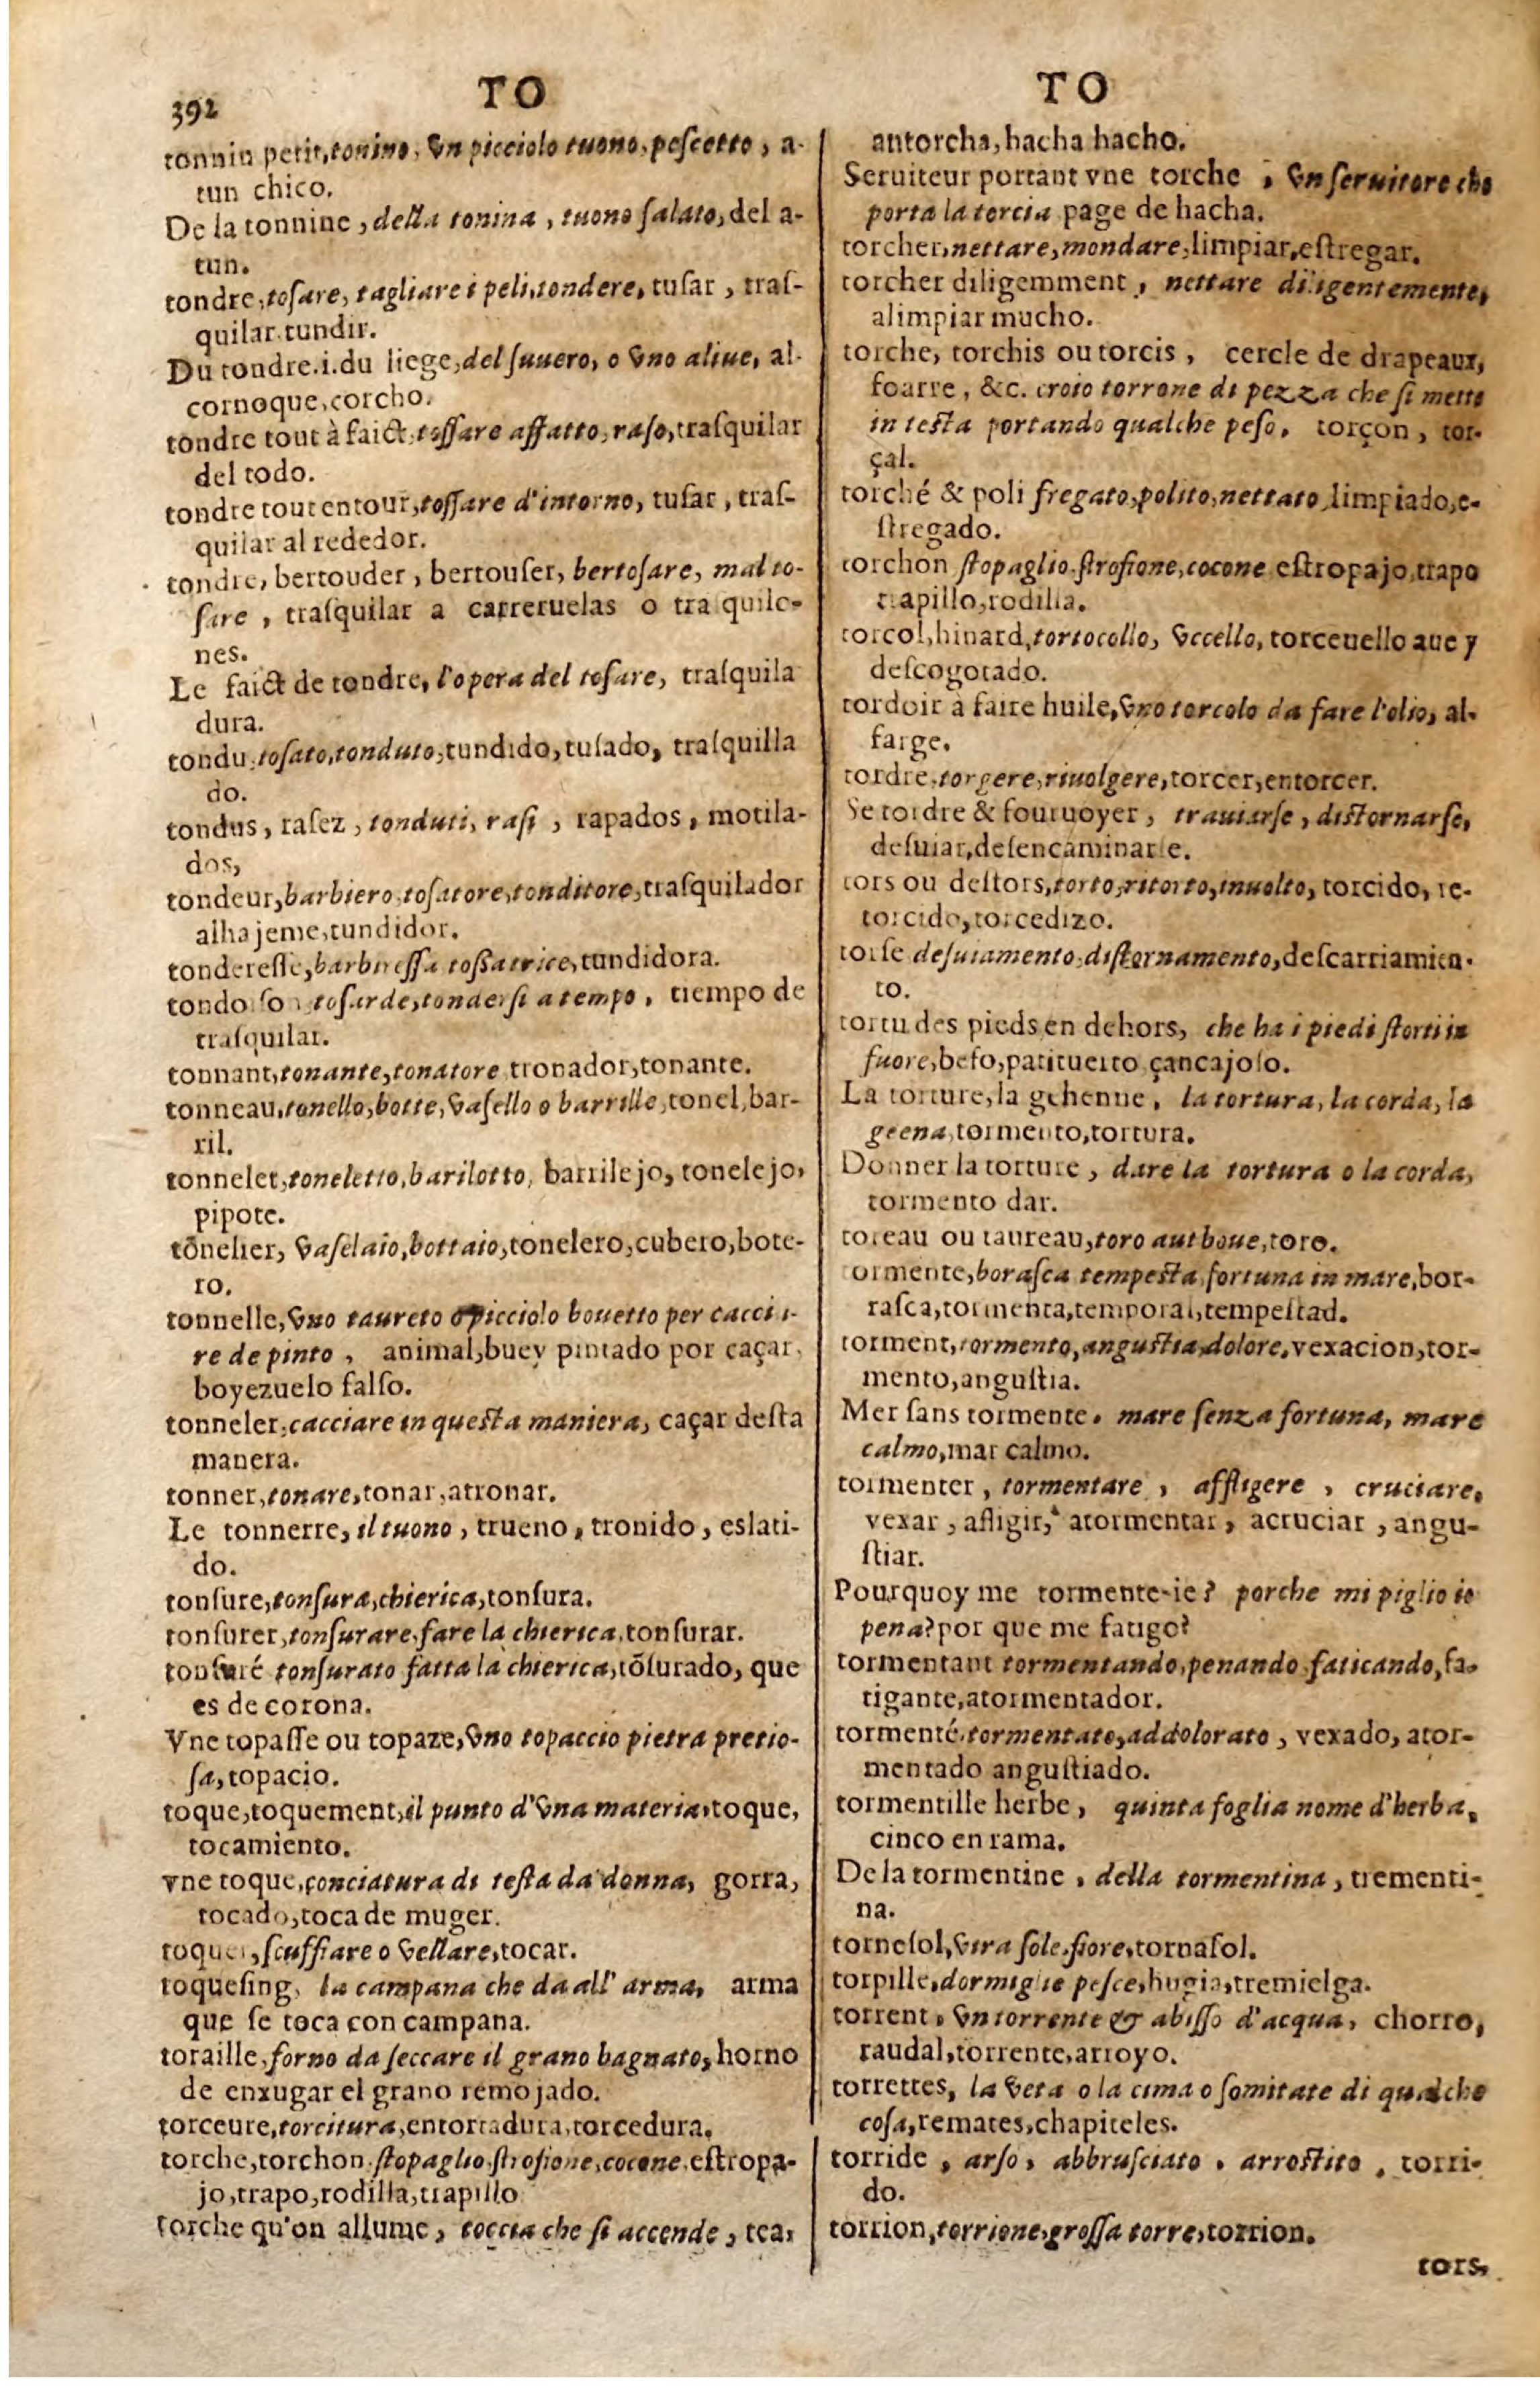 392
TO
TO
tonnin petit, tonino, vn picciolo tuono, pescetto, a-
tun chico.
De la tonnine, della tonina, tuono ſalato, del a-
tun.
tondre, toſare, tagliare i peli, tondere, tuſar, traſ-
quilar tundir.
Du tondre.i.du liege, del ſuuero, o vno aliue, al-
cornoque, corcho.
tondre tout à faict, toſſare affatto, raſo, traſquilar
del todo.
tondre tout entour, toſſare d'intorno, tuſar, traſ-
quilar al rededor.
tondre, bertouder, bertouſer, bertoſare, mal to-
ſare, traſquilar a carreruelas o tra quilo-
nes.
Le faict de tondre, l'opera del toſare, traſquila
dura.
tondu, toſato, tonduto, tundido, tuſado, traſquilla
do.
tondus, raſez, tonduti, raſi, rapados, motila-
dos,
tondeur, barbiero, toſatore, tonditore, traſquilador
alhajeme, tundidor.
tondereſſe, barbireſſa toſſatrice, tundidora.
toſarde, tonderſi a tempo, tiempo de
traſquilar.
tonnant, tonante, tonatore tronador, tonante.
tonneau, tonello, botte, vaſello o barrille, tonel, bar-
ril.
tonnelet, toneletto, barilotto, barrilejo, tonelejo,
pipote.
tõnelier, vaſelaio, bottaio, tonelero, cubero, bote-
ro.
tonnelle, vno taureto o picciolo bouetto per cacci a-
re de pinto, animal, buey pintado por caçar,
boyezuelo falſo.
tonneler, cacciare in queſta maniera, caçar deſta
manera.
tonner, tonare, tonar, atronar.
Le tonnerre, il tuono, trueno, tronido, eslati-
do.
tonſure, tonſura, chierica, tonſura.
tonſurer, tonſurare, fare la chierica, tonſurar.
tonſuré tonſurato fatta la chierica, tõſurado, que
es de corona.
Vne topaſſe ou topaze, vno topaccio pietra pretio-
ſa, topacio.
toque, toquement, il punto d'vna materia, toque,
tocamiento.
vne toque, conciatura di teſta da donna, gorra,
tocado, toca de muger.
toquer, ſcuffiare o vellare, tocar.
toqueſing, la campana che da all' arma, arma
que ſe toca con campana.
toraille, forno da ſeccare il grano bagnato, horno
de enxugar el grano remojado.
torceure, torcitura, entortadura, torcedura.
torche, torchon, ſtopaglio, ſtrofione, cocone, eſtropa-
jo, trapo, rodilla, trapillo
torche qu'on allume, toccia che ſi accende, tea,
antorcha, hacha hacho.
Seruiteur portant vne torche, vn ſeruitore che
porta la torcia page de hacha.
torcher, nettare, mondare, limpiar, eſtregar.
torcher diligemment, nettare diligentemente,
alimpiar mucho.
torche, torchis ou torcis, cercle de drapeaux,
foarre, &c. croio torrone di pezza che ſi mette
in teſta portando qualche peſo, torçon, tor-
çal.
torché & poli fregato, polito, nettato, limpiado, e-
ſtregado.
torchon ſtopaglio, ſtrofione, cocone eſtropajo, trapo
trapillo, rodilla.
torcol, hinard, tortocollo, vccello, torceuello aue y
deſcogotado.
tordoir à faire huile, vno torcolo da fare l'olio, al-
farge.
tordre, torgere, riuolgere, torcer, entorcer.
Se tordre & fouruoyer, trauiarſe, diſtornarſe,
deſuiar, deſencaminarſe.
tors ou deſtors, torto, ritorto, inuolto, torcido, re-
torcido, torcedizo.
torſe deſuiamento, diſtornamento, deſcarriamien-
to.
tortu des pieds en dehors, che ha i piedi ſtorti in
fuore, befo, patituerto çancajoſo.
La torture, la gehenne, la tortura, la corda, la
geena, tormento, tortura.
Donner la torture, dare la tortura o la corda,
tormento dar.
toreau ou taureau, toro aut boue, toro.
tormente, boraſca tempeſta fortuna in mare, bor-
raſca, tormenta, temporal, tempeſtad.
torment, tormento, anguſtia, dolore, vexacion, tor-
mento, anguſtia.
Mer ſans tormente. mare ſenza fortuna, mare
calmo, mar calmo.
tormenter, tormentare, affligere, cruciare,
vexar, afligir, atormentar, acruciar, angu-
ſtiar.
Pourquoy me tormente-ie? porche mi piglio io
pena? por que me fatigo?
tormentant tormentando, penando faticando, fa-
tigante, atormentador.
tormenté, tormentato, addolorato, vexado, ator-
mentado anguſtiado.
tormentille herbe, quinta foglia nome d'herba,
cinco en rama.
De la tormentine, della tormentina, trementi-
na.
torneſol, vira ſole, fiore, tornaſol.
torpille, dormiglie peſce, hugia, tremielga.
torrent, vn torrente & abiſſo d'acqua, chorro,
raudal, torrente, arroyo.
torrettes, la veta o la cima o ſomitate di qualche
coſa, remates, chapiteles.
torride, arſo, abbruſciato, arroſtito, torri-
do.
torrion, torrione, groſſa torre, torrion.
tors,